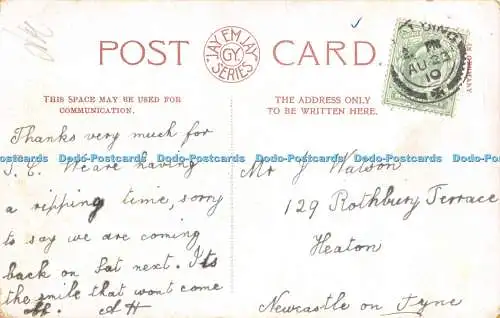 POST CARD.
JAY EM JAY
GY.
SERIES
THIS SPACE MAY BE USED FOR
COMMUNICATION.
THE ADDRESS ONLY
TO BE WRITTEN HERE.
AU 23
10
GERMANY
Thanks very much for
We are having
a ripping time, sorry
to say we are coming
back on Sat next. Its
the smile that wont come
off. A H
Mr J Watson
129 Rothbury Terrace
Heaton
Newcastle on Tyne
Dodo-Postcards Dodo-Postcards Dodo-Postcards Dodo-Postcards Dodo-Postcards